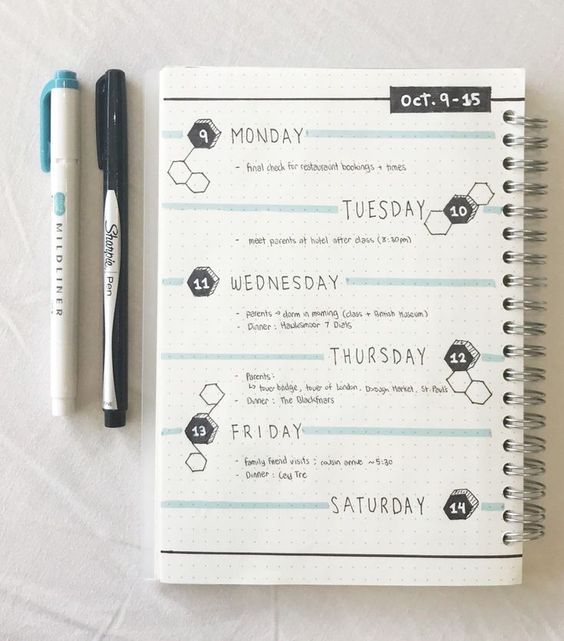 Oct. 9-15
9 MONDAY
- final check for restaurant bookings + times
TUESDAY 10
- meet parents at hotel after class (8:30pm)
11 WEDNESDAY
- parents → dorm in morning (class + British Museum)
- Dinner : Hawksmoor 7 Dials
THURSDAY 12
- Parents:
↳ tower badge, tower of London, Borough Market, St. Paul's
- Dinner : The Blackfriars
13 FRIDAY
- family friend visits ; cousin arrive ~5:30
- Dinner : Cay Tre
SATURDAY 14
MILDLINER
Sharpie
Pen